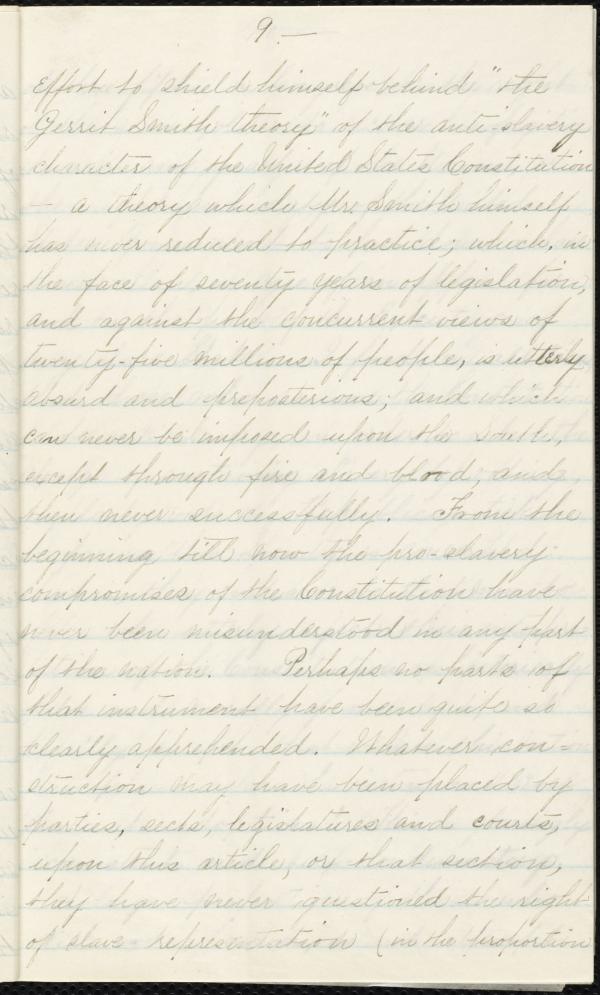 9.—
effort to shield himself behind "the
Gerrit Smith theory" of the anti-slavery
character of the United States Constitution
— a theory which Mr. Smith himself
has never reduced to practice; which, in
the face of seventy years of legislation,
and against the concurrent views of
twenty-five millions of people, is utterly
absurd and preposterious; and which
can never be imposed upon the South,
except through fire and blood, and
then never successfully. From the
beginning till now the pro-slavery
compromises of the Constitution have
never been misunderstood in any part
of the nation. Perhaps no parts of
that instrument have been quite so
clearly apprehended. Whatever con=
struction may have been placed by
parties, sects, legislatures and courts,
upon this article, or that section,
they have never questioned the right
of slave representation (in the proportion